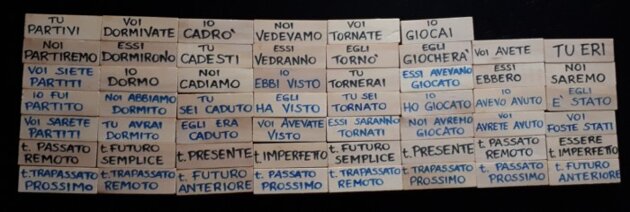 TU
PARTIVI
VOI
DORMIVATE
IO
CADRO'
NOI
VEDEVAMO
VOI
TORNATE
IO
GIOCAI
NOI
PARTIREMO
ESSI
DORMIRONO
TU
CADESTI
ESSI
VEDRANNO
EGLI
TORNO'
EGLI
GIOCHERA'
VOI AVETE
TU ERI
VOI SIETE
PARTITI
IO
DORMO
NOI
CADIAMO
IO
EBBI VISTO
TU
TORNERAI
ESSI AVEVANO
GIOCATO
ESSI
EBBERO
NOI
SAREMO
IO FUI
PARTITO
NOI ABBIAMO
DORMITO
TU
SEI CADUTO
EGLI
HA VISTO
TU SEI
TORNATO
IO
HO GIOCATO
IO
AVEVO AVUTO
EGLI
E' STATO
VOI SARETE
PARTITI
TU AVRAI
DORMITO
EGLI ERA
CADUTO
VOI AVEVATE
VISTO
ESSI SARANNO
TORNATI
NOI AVREMO
GIOCATO
VOI
AVRETE AVUTO
VOI
FOSTE STATI
t. PASSATO
REMOTO
t. FUTURO
SEMPLICE
t. PRESENTE
t. IMPERFETTO
t. FUTURO
SEMPLICE
t. PRESENTE
t. PASSATO
REMOTO
ESSERE
t. IMPERFETTO
t. TRAPASSATO
PROSSIMO
t. TRAPASSATO
REMOTO
t. FUTURO
ANTERIORE
t. PASSATO
PROSSIMO
t. TRAPASSATO
REMOTO
t. TRAPASSATO
PROSSIMO
t. PASSATO
PROSSIMO
t. FUTURO
ANTERIORE